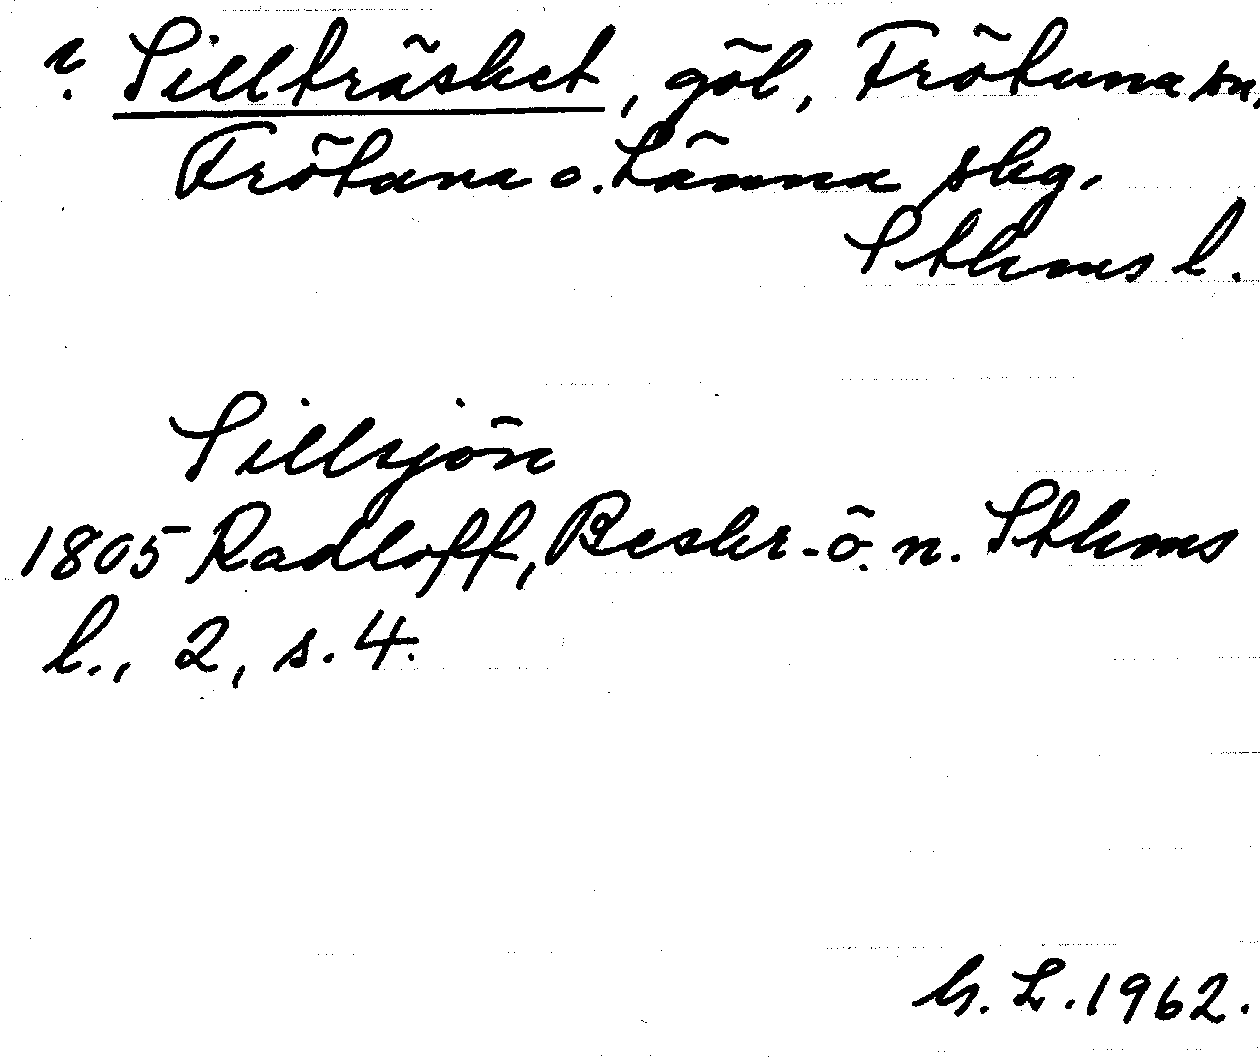 ? Sillträsket, göl, Frötuna sn,
Frötuna o. Länna skg.
Sthms l.
Sillsjön
1805 Radloff, Beskr. ö. n. Sthms
l., 2, s. 4.
G. L. 1962.